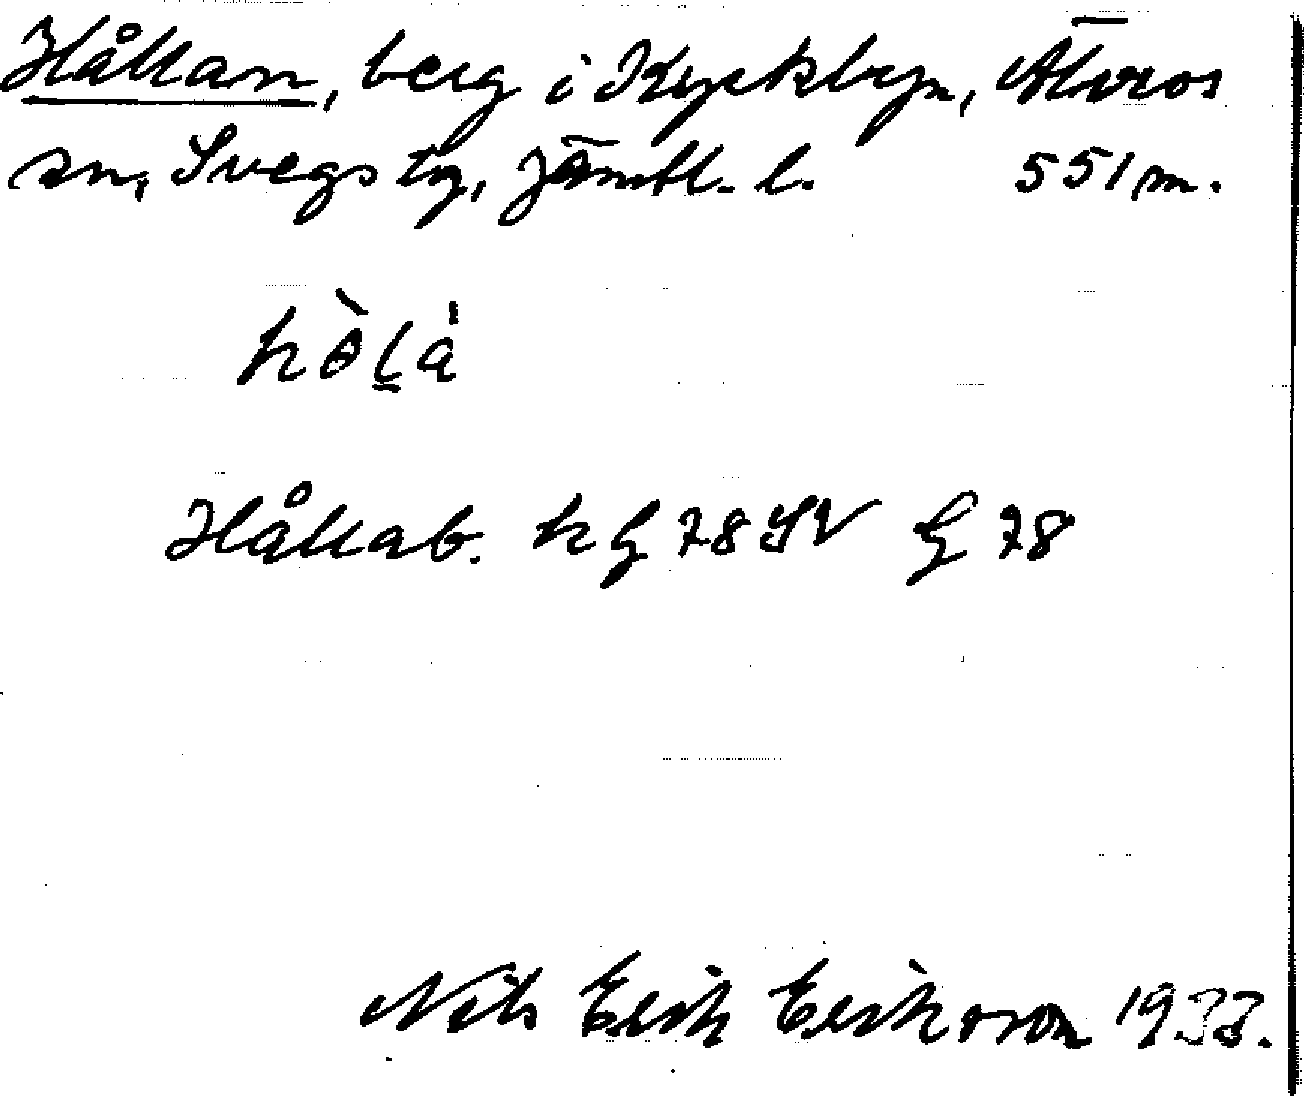 Hållan, berg i Kyrkbyn, Älvros
sn, Svegs tg, Jämtl. l. 551 m.
hòlà
Hållab. h G 78 SV G 78
Nils Erik Eriksson 1933.